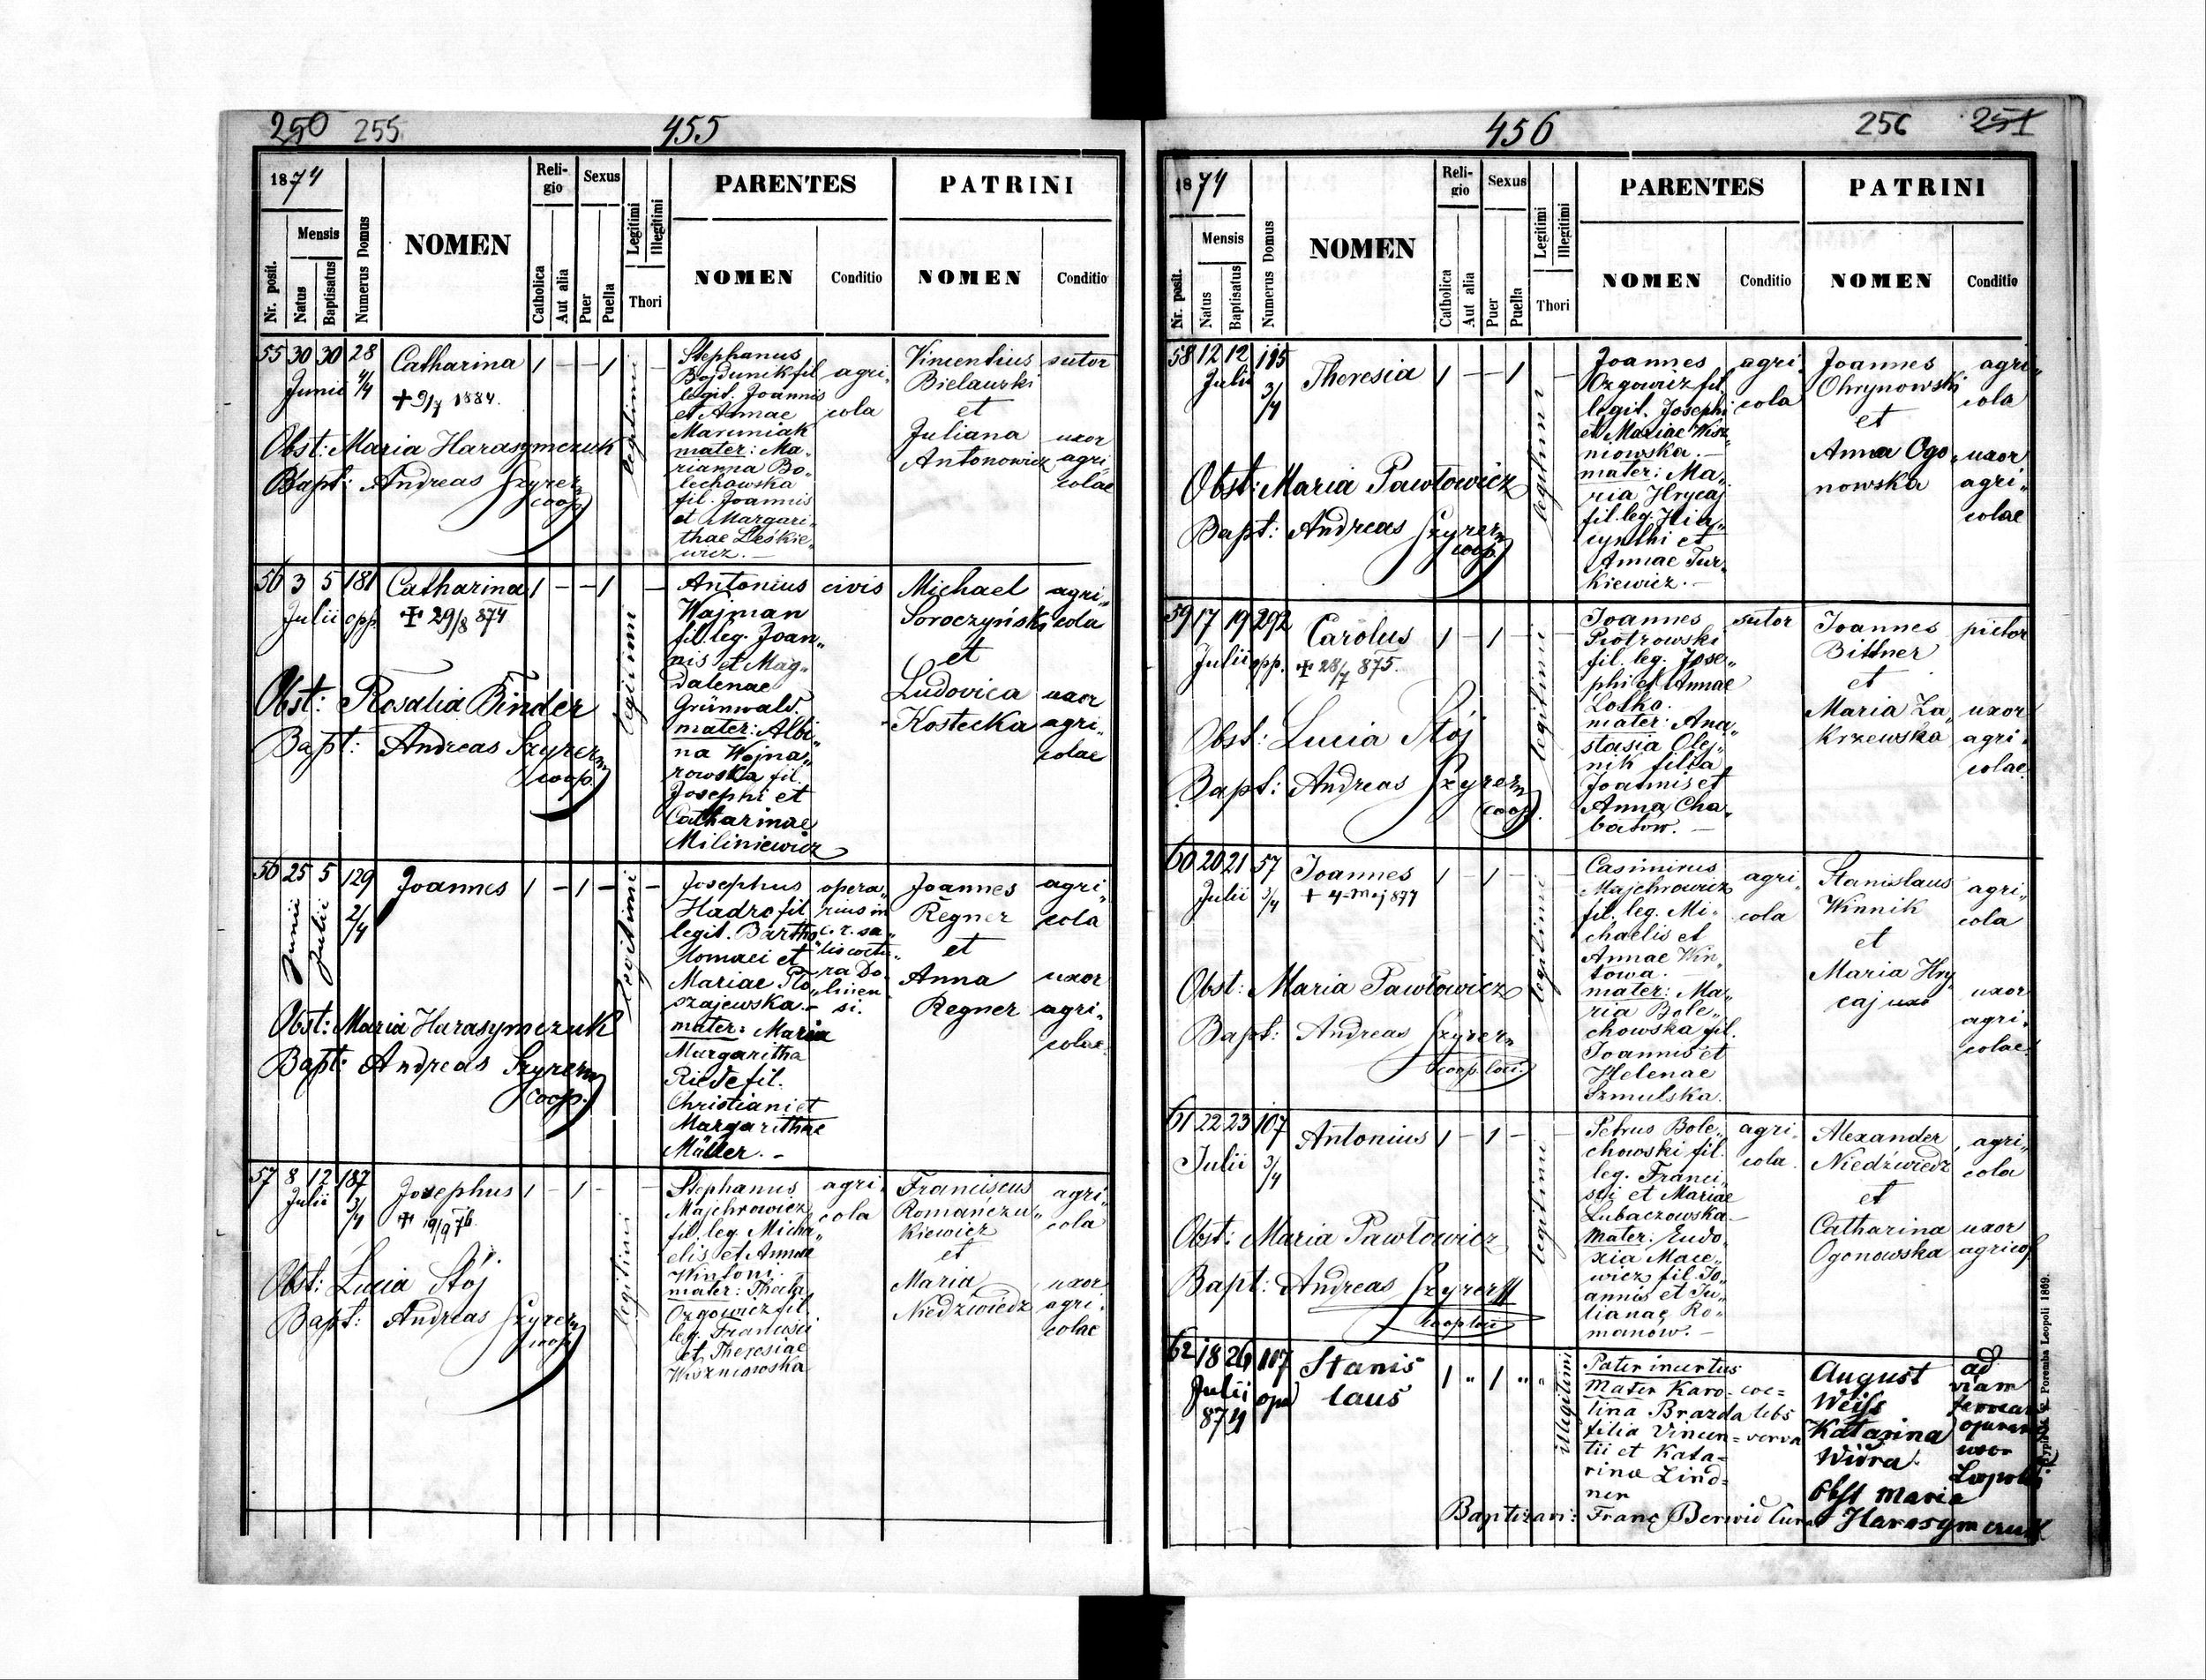 250 255 455
1874
Nr. posit.
Mensis
Natus
Baptisatus
Numerus Domus
NOMEN
Religio
Catholica
Aut alia
Sexus
Puer
Puella
Legitimi
Illegitimi
Thori
PARENTES
NOMEN
Conditio
PATRINI
NOMEN
Conditio
55 30 30 28
Junii 4/4
Catharina
+ 9/7 1884.
1 – – 1 –
legitimi
Obst: Maria Harasymczuk
Bapt: Andreas Szyrer
coop.
Stephanus
Bojdunik fil
legit. Joannis
et Annae
Maruniak
mater: Ma„
rianna Bo„
lechowska
fil. Joannis
et Margari„
thae Leśkie„
wicz. –
agri„
cola
Vincentius
Bielawski
et
Juliana
Antonowicz
sutor
uxor
agri„
colae
56 3 5 181
Julii opp.
Catharina
+ 29/8 874
1 – – 1 –
legitimi
Obst: Rosalia Binder
Bapt: Andreas Szyrer
coop.
Antonius
Wajman
fil. leg. Joan„
nis et Mag„
dalenae
Grünwald.
mater: Albi„
na Wojna„
rowska fil.
Josephi et
Catharinae
Miliniewicz
civis
Michael
Soroczyński
et
Ludovica
Kostecka
agri„
cola
uxor
agri„
colae
56 25 5 129
Junii Julii 2/4
Joannes
1 – 1 – –
legitimi
Obst: Maria Harasymczuk
Bapt: Andreas Szyrer
coop.
Josephus
Hadro fil
legit. Bartho„
lomaei et
Mariae
szajewska. –
mater: Maria
Margaritha
Riede fil.
Christiani et
Margarithae
Müller. –
opera„
rius in
c. r. sa„
lis coctu„
ra Do„
linen„
si.
Joannes
Regner
et
Anna
Regner
agri„
cola
uxor
agri„
colae
57 8 12 187
Julii 3/4
Josephus
+ 19/9 76.
1 – 1 – –
legitimi
Obst: Lucia Stój
Bapt: Andreas Szyrer
coop.
Stephanus
Majchrowicz
fil. leg. Micha„
elis et Annae
Wintoni.
mater: Thecla
Ozgowicz fil.
leg. Francisci
et Theresiae
Wiszniowska
agri„
cola
Franciscus
Romanczu„
kiewicz
et
Maria
Niedzwiedz
agri„
cola
uxor
agri„
colae
456 256 251
1874
Nr. posit.
Mensis
Natus
Baptisatus
Numerus Domus
NOMEN
Religio
Catholica
Aut alia
Sexus
Puer
Puella
Legitimi
Illegitimi
Thori
PARENTES
NOMEN
Conditio
PATRINI
NOMEN
Conditio
58 12 12 115
Julii 3/4
Theresia
1 – – 1 –
legitimi
Obst: Maria Pawłowicz
Bapt: Andreas Szyrer
coop.
Joannes
Ozgowicz fil.
legit. Josephi
et Mariae Wisz„
niowska. –
mater: Ma„
ria Hrycaj
fil. leg. Hia„
cynthi et
Annae Tur„
kiewicz. –
agri„
cola
Joannes
Ohrynowski
et
Anna Ogo„
nowska
agri„
cola
uxor
agri„
colae
59 17 19 292
Julii opp.
Carolus
+ 28/7 875.
1 – 1 – –
legitimi
Obst: Lucia Stój
Bapt: Andreas Szyrer
coop.
Joannes
Piotrowski
fil. leg. Jose„
phi et Annae
Losko.
mater: Ana„
stasia Olej„
nik filia
Joannis et
Anna Cha„
batow. –
sutor
Joannes
Bittner
et
Maria Za„
krzewska
pictor
uxor
agri„
colae
60 20 21 57
Julii 3/4
Joannes
+ 4. Maj 877
1 – 1 – –
legitimi
Obst: Maria Pawłowicz
Bapt: Andreas Szyrer
coop. loci.
Casimirus
Majchrowicz
fil. leg. Mi„
chaelis et
Annae Win„
towa. –
mater: Ma„
ria Bole„
chowska fil.
Joannis et
Helenae
Szmulska.
agri„
cola
Stanislaus
Winnik
et
Maria Hry„
caj uxo
agri„
cola
uxor
agri„
colae
61 22 23 107
Julii 3/4
Antonius
1 – 1 – –
legitimi
Obst: Maria Pawłowicz
Bapt: Andreas Szyrer
coop loci
Petrus Bole„
chowski fil.
leg. Franci„
sci et Mariae
Lubaczowska –
mater: Eudo„
xia Mace„
wicz fil. Jo„
annis et Ju„
lianae Ro„
manow. –
agri„
cola
Alexander
Niedźwiedz
et
Catharina
Ogonowska
agri„
cola
uxor
agricol
62 18 26 107
Julii opp
874
Stanis
laus
1 „ 1 „ „
illegitimi
Pater incertus
Mater Karo=
lina Brazda
filia Vincen=
tii et Kata=
rinae Lind=
ner
coe=
lebs
serva
August
Weiss
Katarina
Widra.
Obst Maria
Harasymczuk
ad
viam
ferream
uxor
Baptizavi: Franc Berwid Cur
Leopoli 1869.